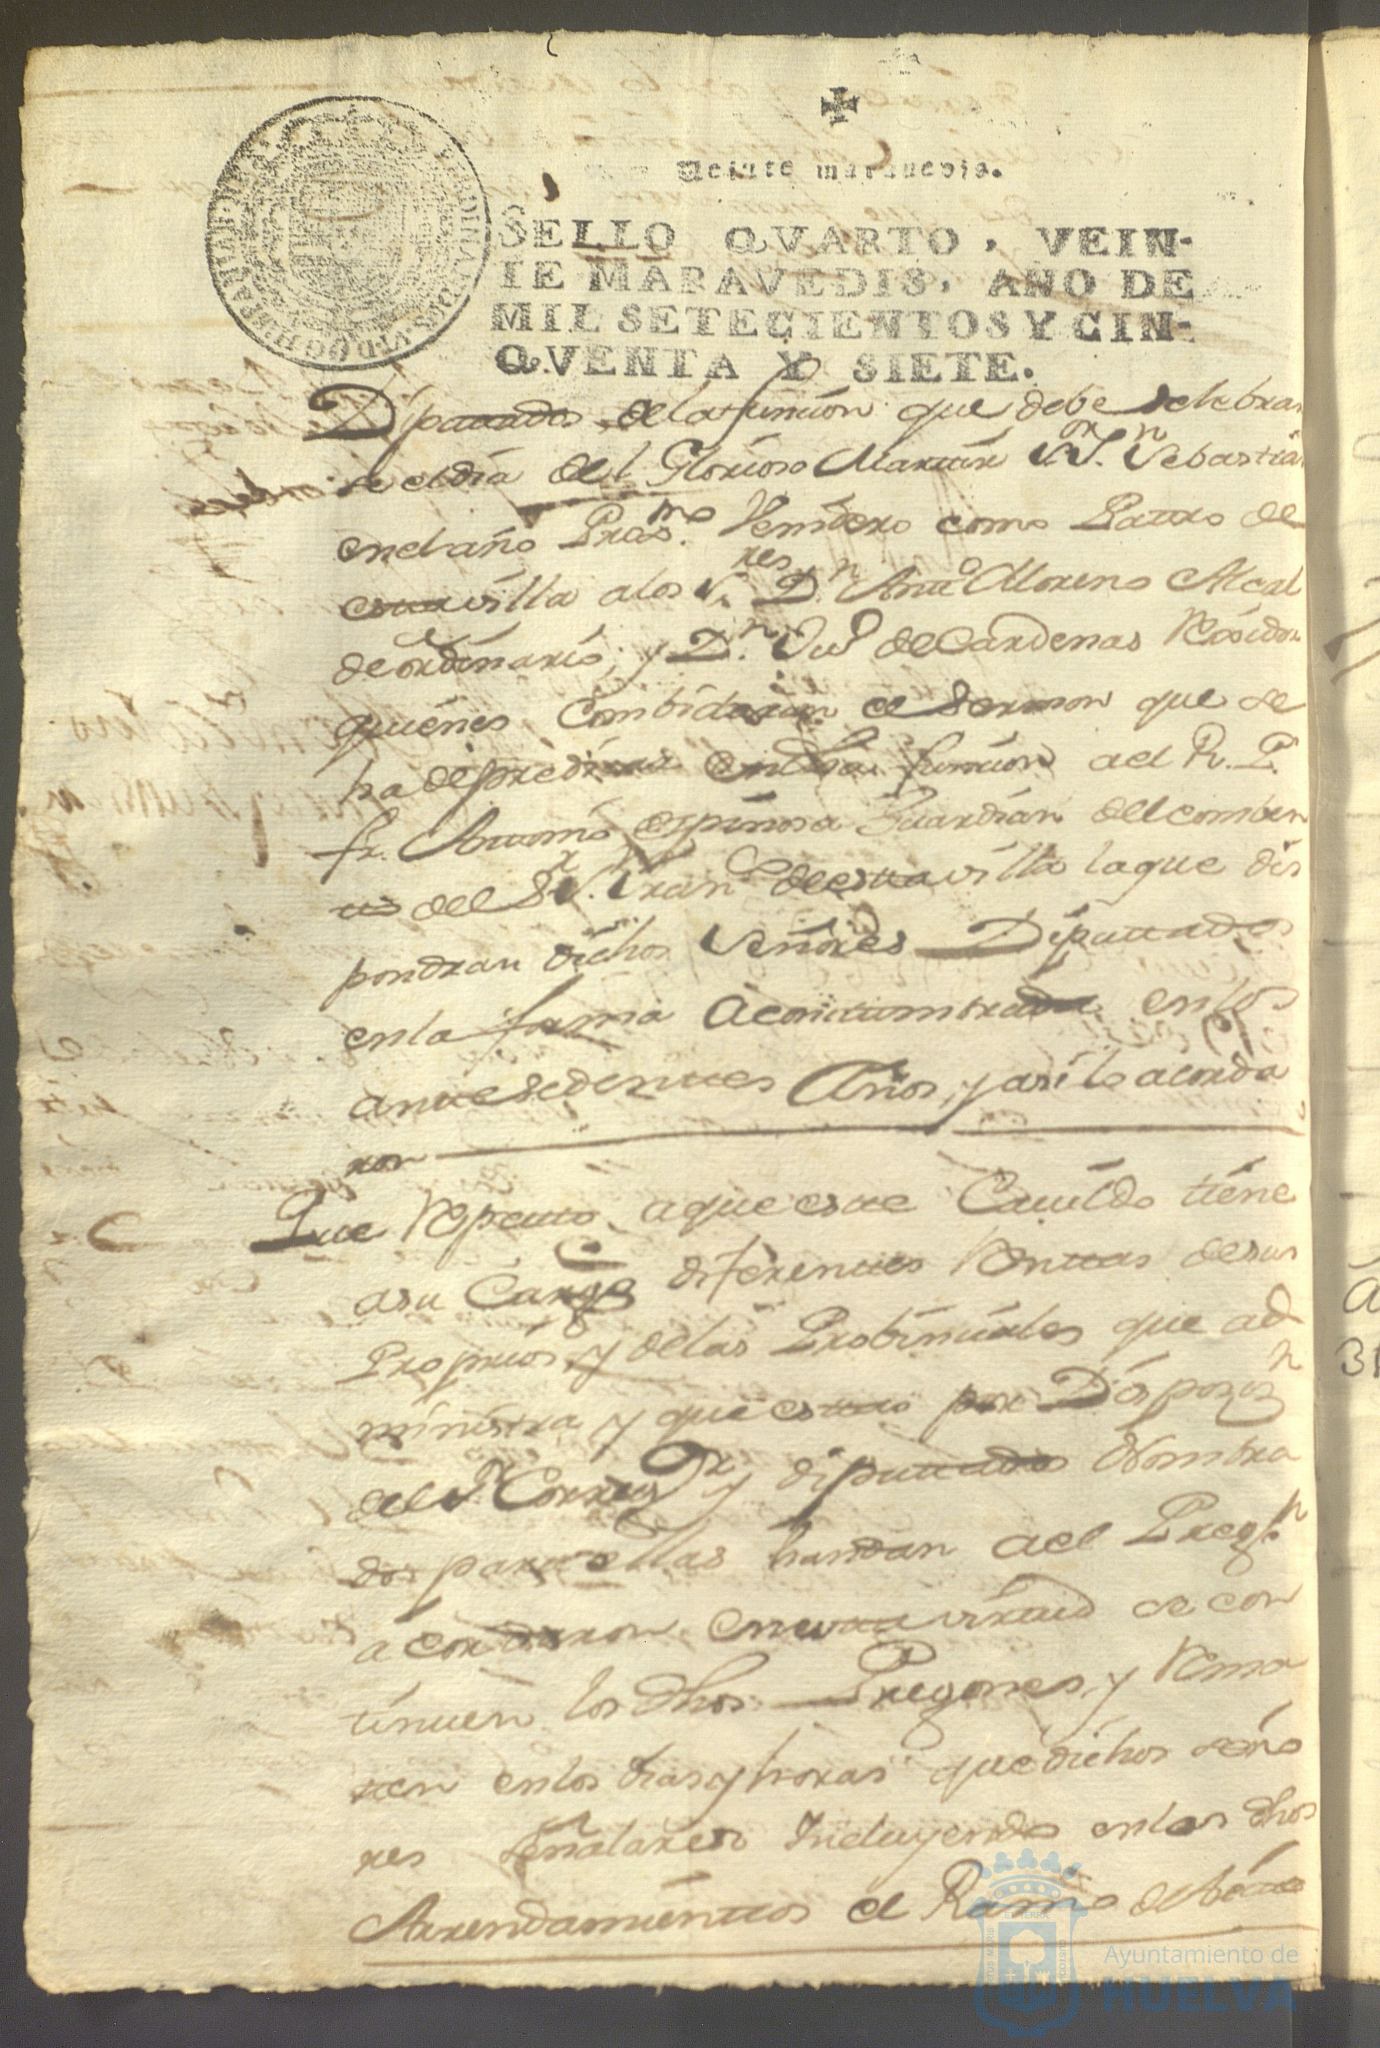 Veinte maravedis.
SELLO QVARTO, VEIN-
TE MARAVEDIS, AÑO DE
MIL SETECIENTOS Y CIN-
QVENTA Y SIETE.
Diputtados de la funcion que debe selebrar
se el dia del Glorioso Martir S.or S.n Sebastian
en el año Pros.mo Venidero como Patro de
estta villa a los S.res D.n Antt.o Moreno Alcal
de ordinario, y D.n Jul de Cardenas Residor
quienes Combidaran el Sermon que se
ha de predicar en dha funcion a el R. P.
fr. Anttonio espinosa Guardian del comben
tto del S.r S. Fran.co de estta villa la que dis
pondran dichos Señores Diputtados
en la forma acosttumbrada en los
anttesedenttes Años, y asi lo acorda
ron
Que Respecto, a que estte Cavildo tiene
a su Cargo diferenttes Renttas de sus
Propios, y de las Probinciales que ad
ministra y que esttas por Dispoz.n
del S.r Correg.r y diputtados Nombra
dos para ellas handan a el Preg.n
acordaron en estta virtud se con
tinuen los dhos Pregones, y Rema
ten en los dias y horas que dichos seño
res señalaren Incluyendo en los dhos
Arrendamienttos el Ramo de
Ayuntamiento de
HUELVA